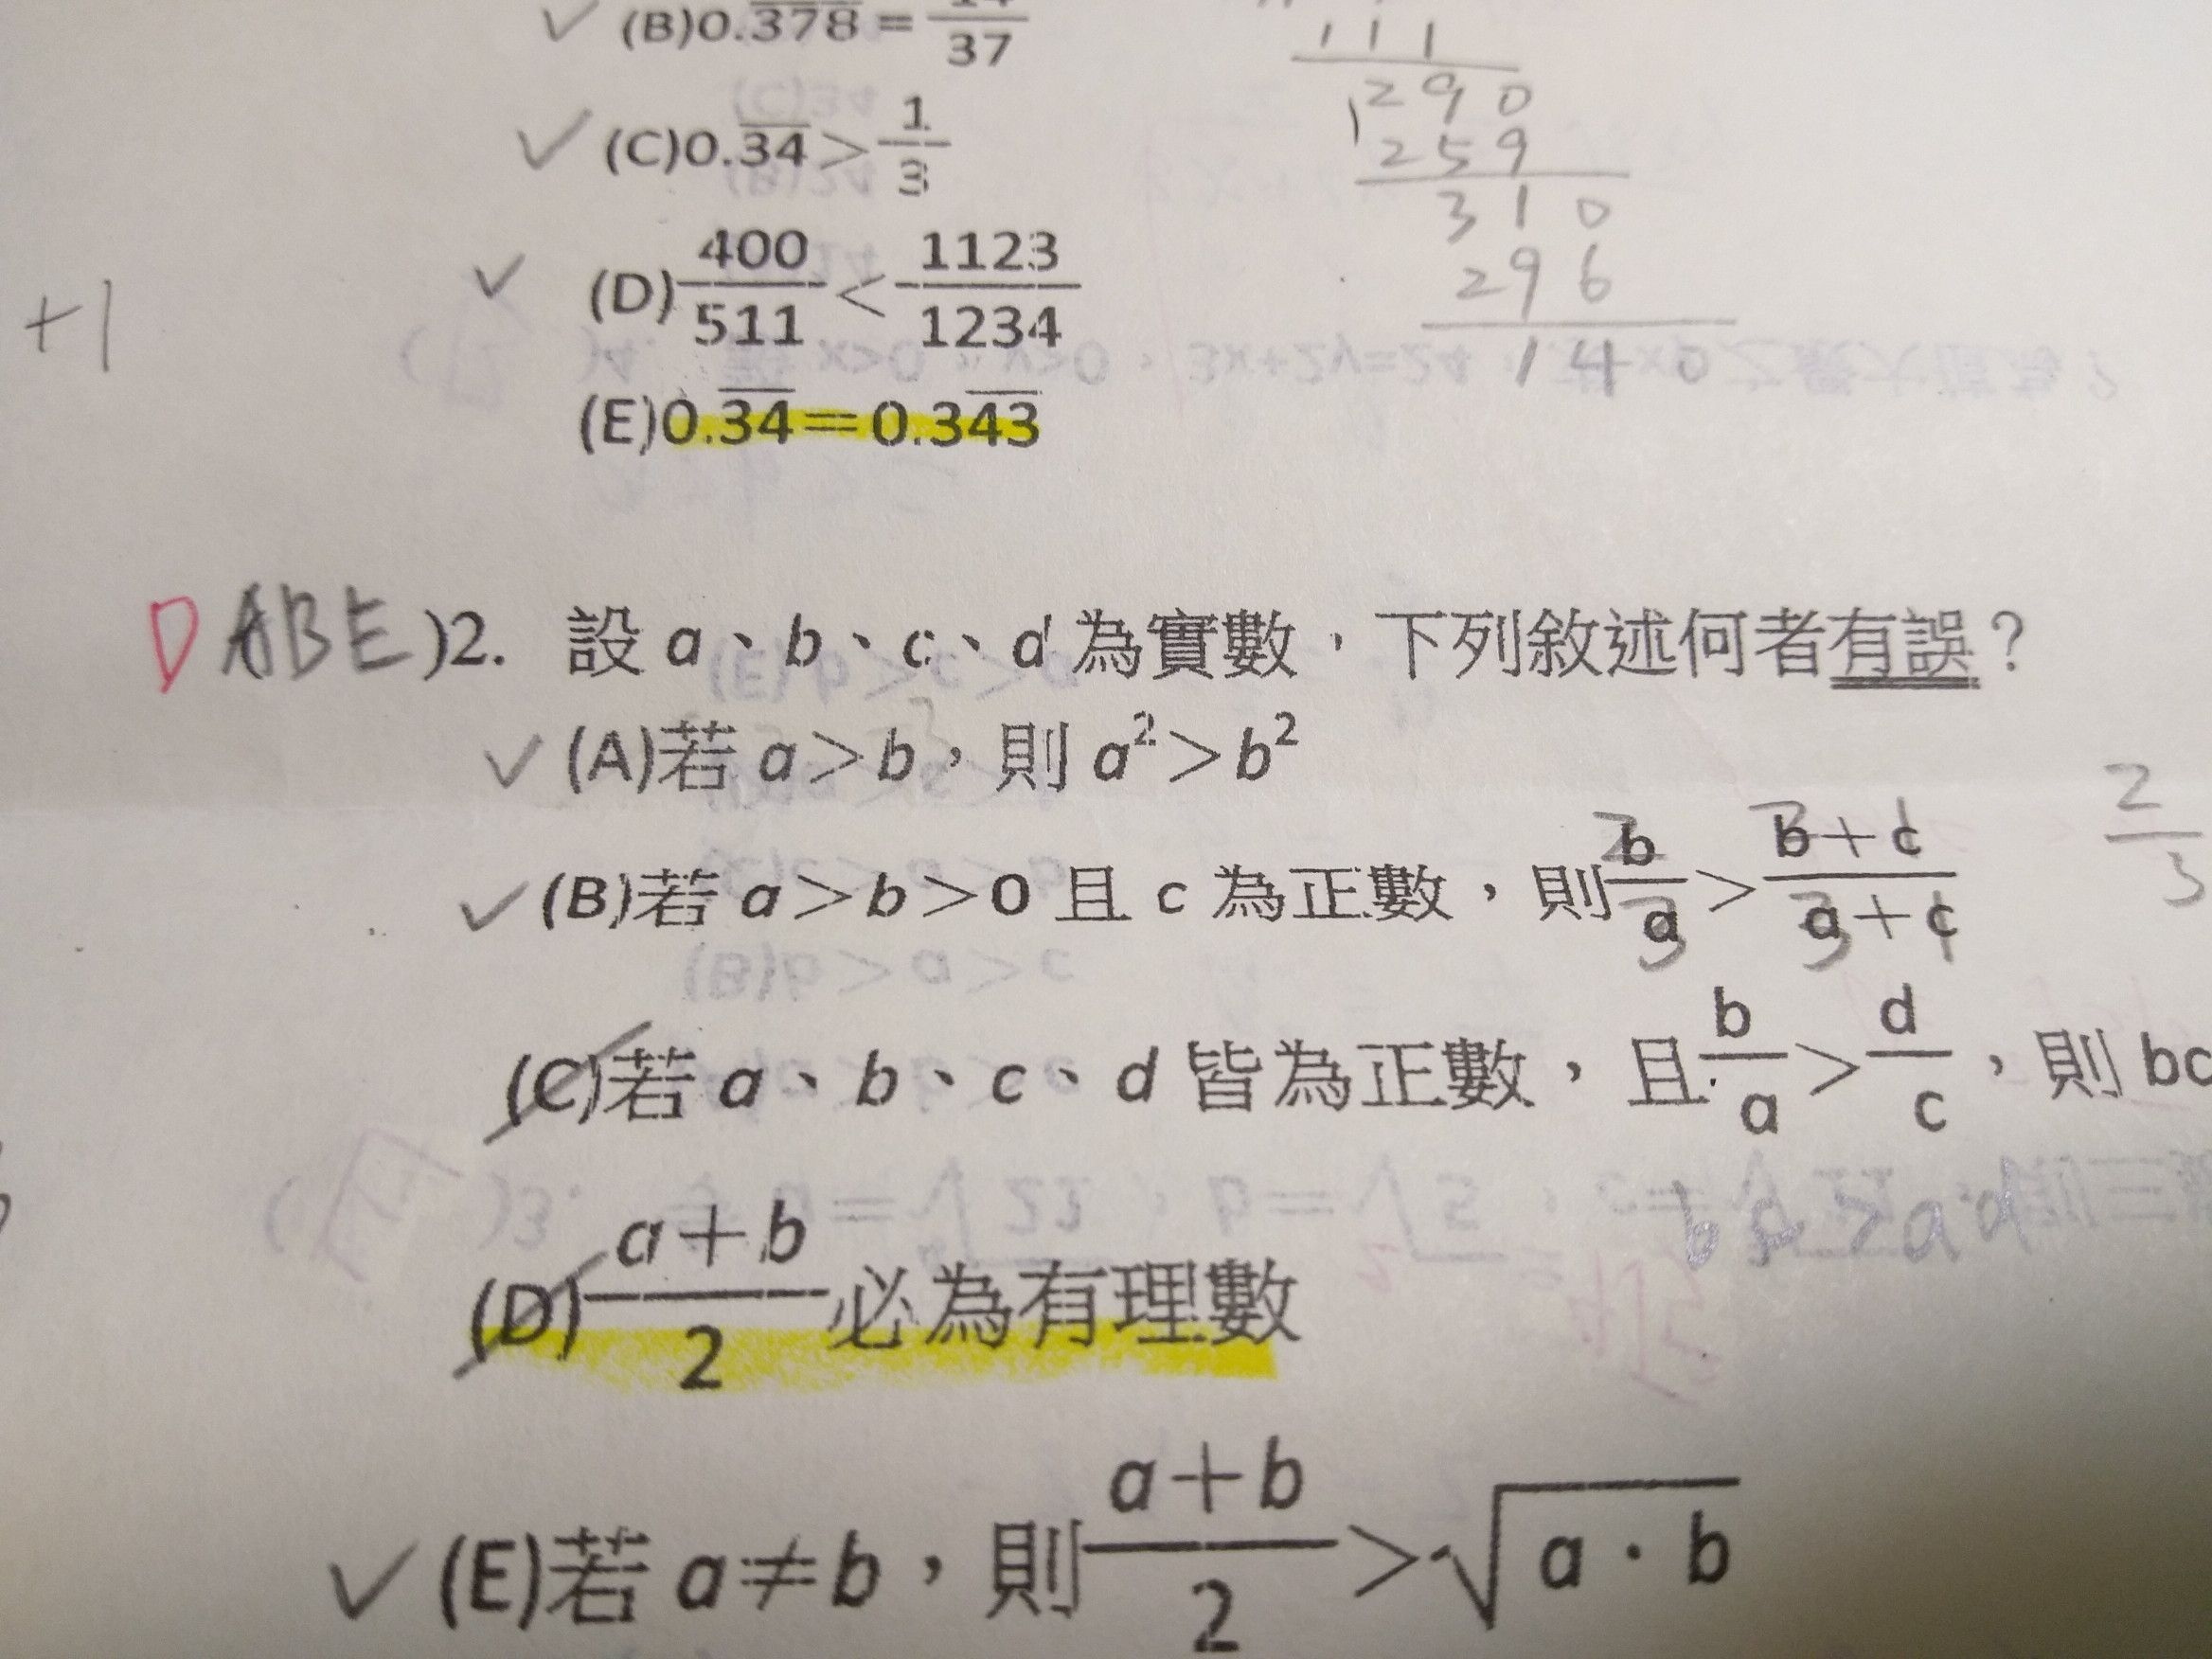 ✓ (B)0.3̅7̅8̅ = 14/37
✓ (C)0.3̅4̅ > 1/3
✓ (D)400/511 < 1123/1234
(E)0.3̅4̅ = 0.34̅3̅
+1
111
290
259
310
296
140
D ABE )2. 設 a、b、c、d 為實數,下列敘述何者有誤?
✓ (A)若 a>b,則 a²>b²
✓ (B)若 a>b>0 且 c 為正數,則 b/a > b+c/a+c
2/3
(C)若 a、b、c、d 皆為正數,且 b/a > d/c,則 bc
(D) a+b/2 必為有理數
✓ (E)若 a≠b,則 a+b/2 > √a·b